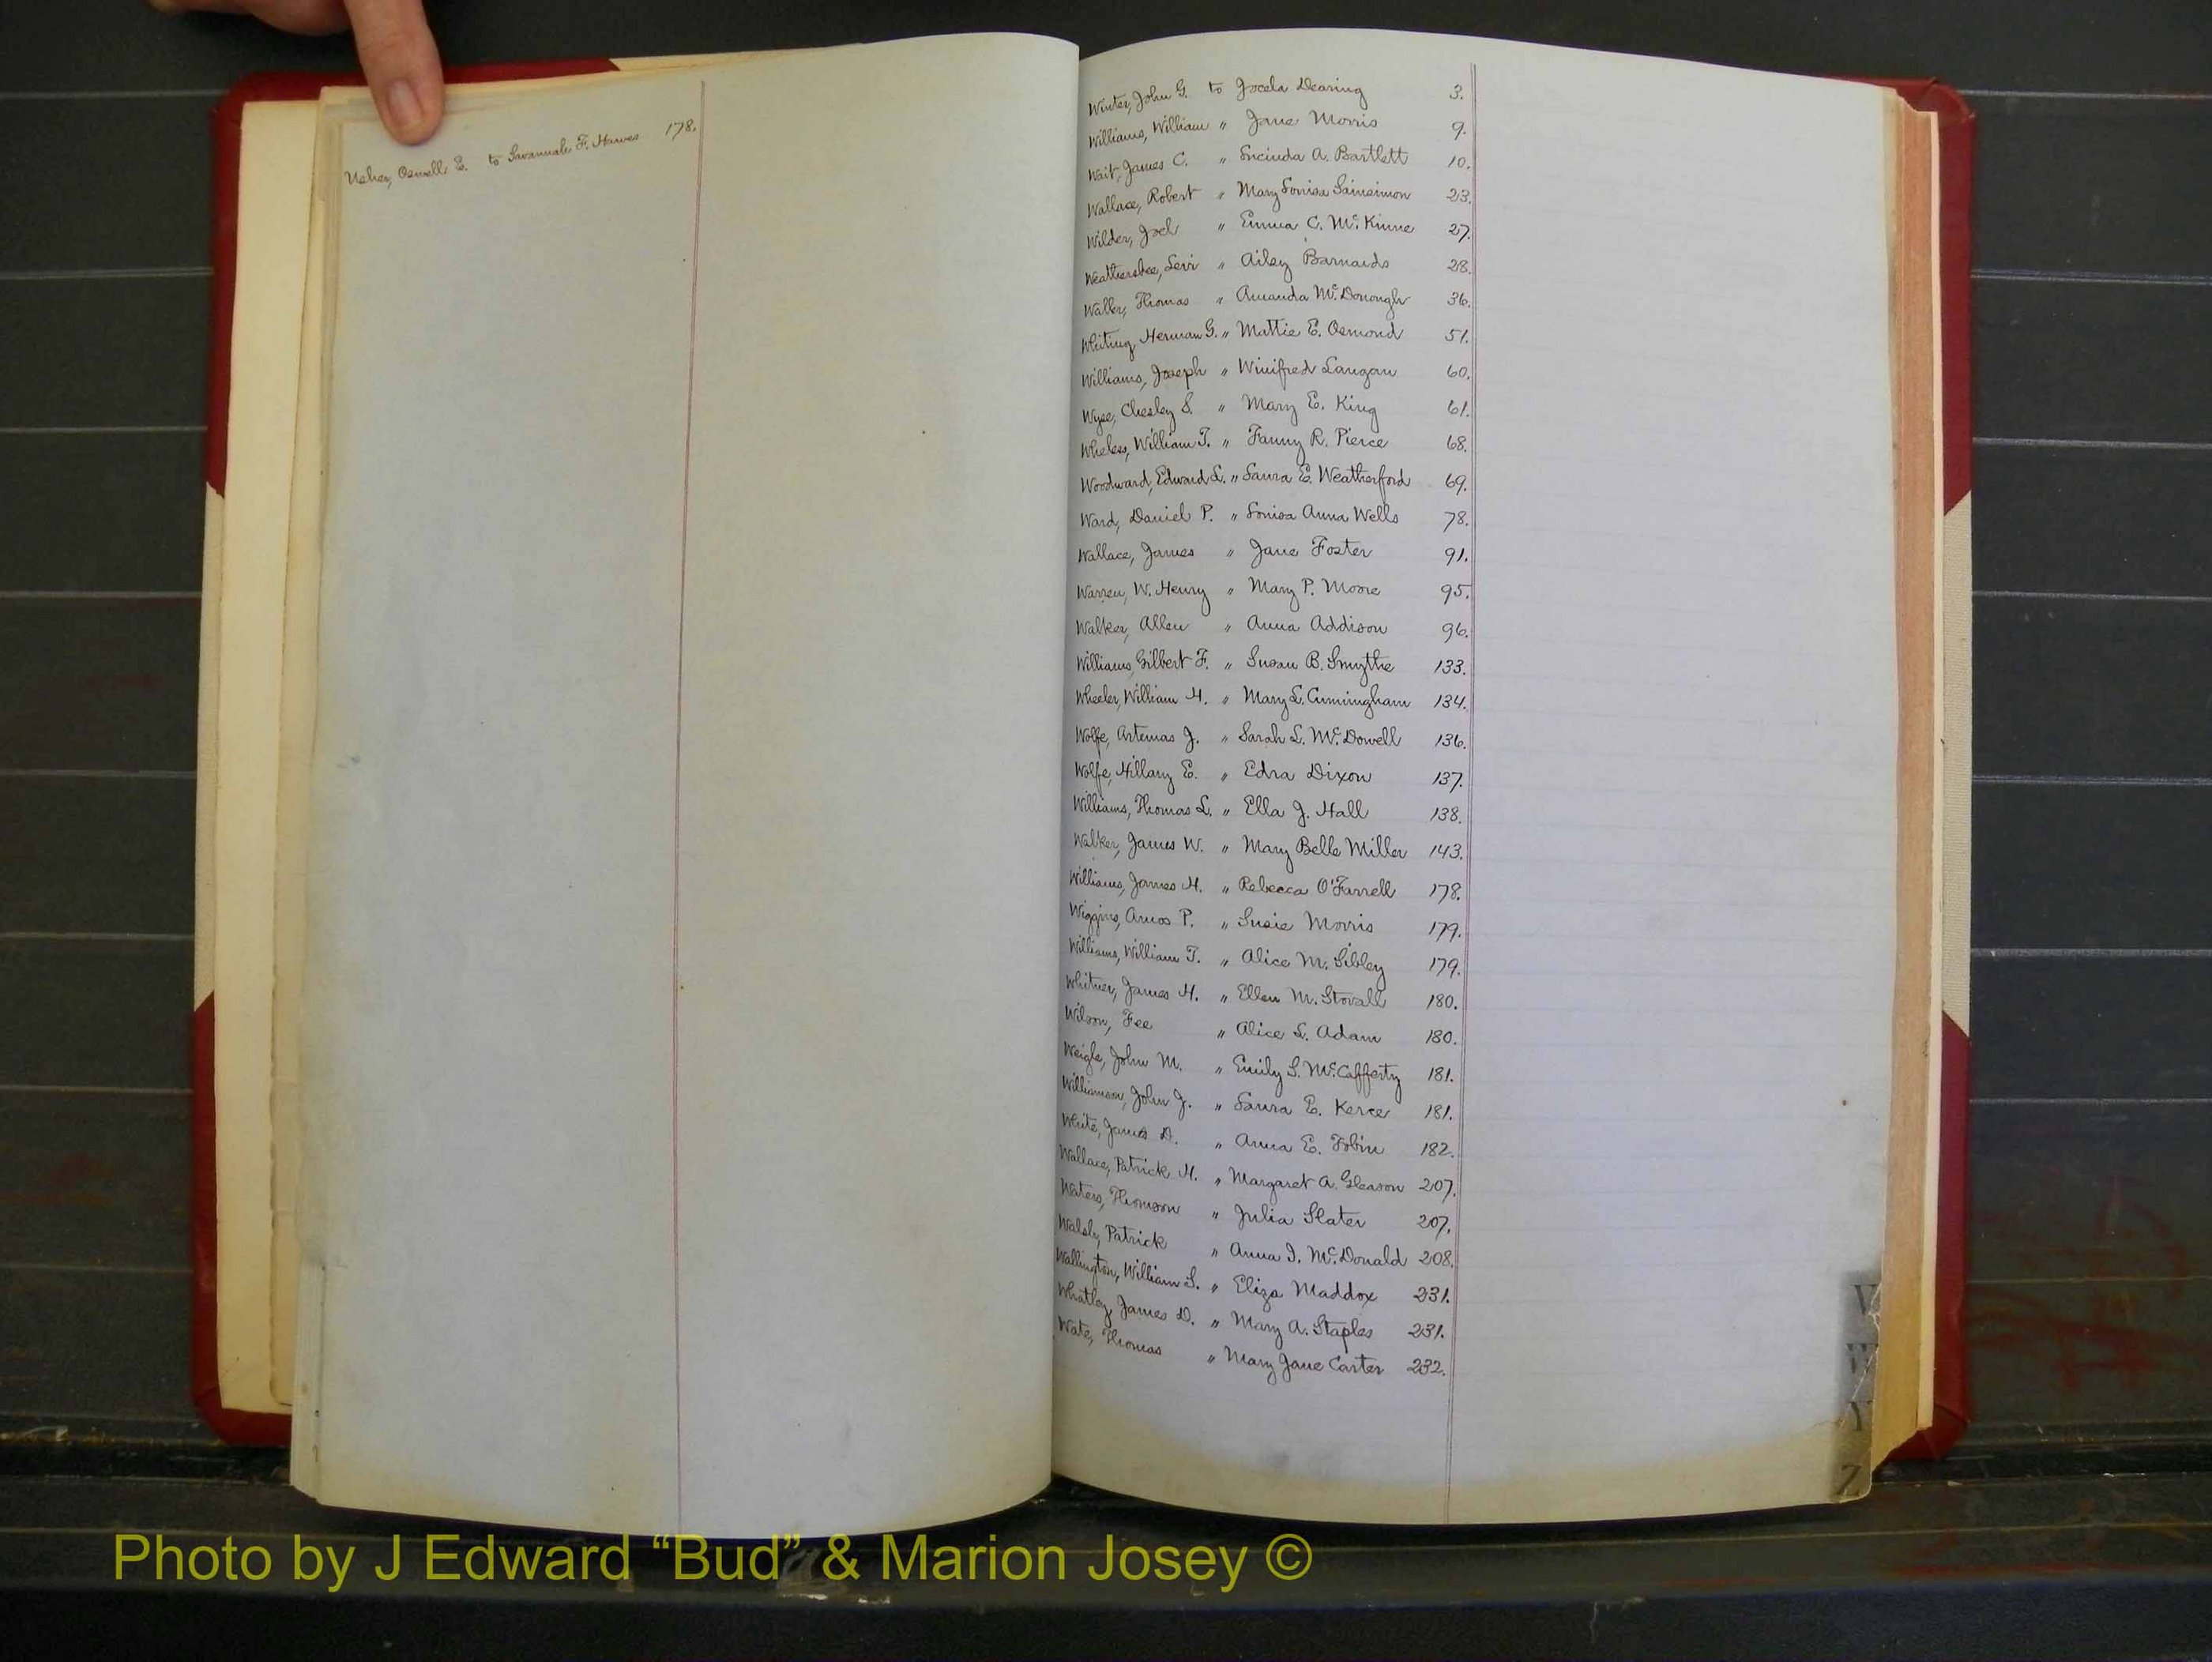 Usher, Oswell E. to Savannah F. Hawes 178.
Winter, John G. to Jocela Dearing 3.
Williams, William " Jane Morris 9.
Wait, James C. " Lucinda A. Bartlett 10.
Wallace, Robert " Mary Louisa Sainsimon 23.
Wilder, Joel " Emma C. McKinne 27.
Weathersbee, Levi " Ailey Barnards 28.
Waller, Thomas " Amanda McDonough 36.
Whiting Herman G. " Mattie E. Osmond 51.
Williams, Joseph " Winifred Langan 60.
Wyse, Chesley S. " Mary E. King 61.
Wheless, William T. " Fanny R. Pierce 68.
Woodward, Edward L. " Laura E. Weatherford 69.
Ward, Daniel P. " Louisa Anna Wells 78.
Wallace, James " Jane Foster 91.
Warren, W. Henry " Mary P. Moore 95.
Walker, Allen " Anna Addison 96.
Williams, Gilbert F. " Susan B. Smythe 133.
Wheeler, William H. " Mary L. Cumingham 134.
Wolfe, Artemas J. " Sarah L. McDowell 136.
Wolfe, Hillary E. " Edra Dixon 137.
Williams, Thomas L. " Ella J. Hall 138.
Walker, James W. " Mary Belle Miller 143.
Williams, James H. " Rebecca O'Farrell 178.
Wiggins, Amos P. " Susie Morris 179.
Williams, William T. " Alice M. Sibley 179.
Whitner, James H. " Ellen M. Stovall 180.
Wilson, Fee " Alice L. Adam 180.
Weigle, John M. " Emily S. McCafferty 181.
Williamson, John J. " Laura E. Kerce 181.
White, James D. " Anna E. Tobin 182.
Wallace, Patrick H. " Margaret A. Gleason 207.
Waters, Thomson " Julia Slater 207.
Walsh, Patrick " Anna I. McDonald 208.
Wallington, William S. " Eliza Maddox 231.
Whatley James D. " Mary A. Staples 231.
Wate, Thomas " Mary Jane Carter 232.
V
W
Y
Z
Photo by J Edward “Bud” & Marion Josey ©